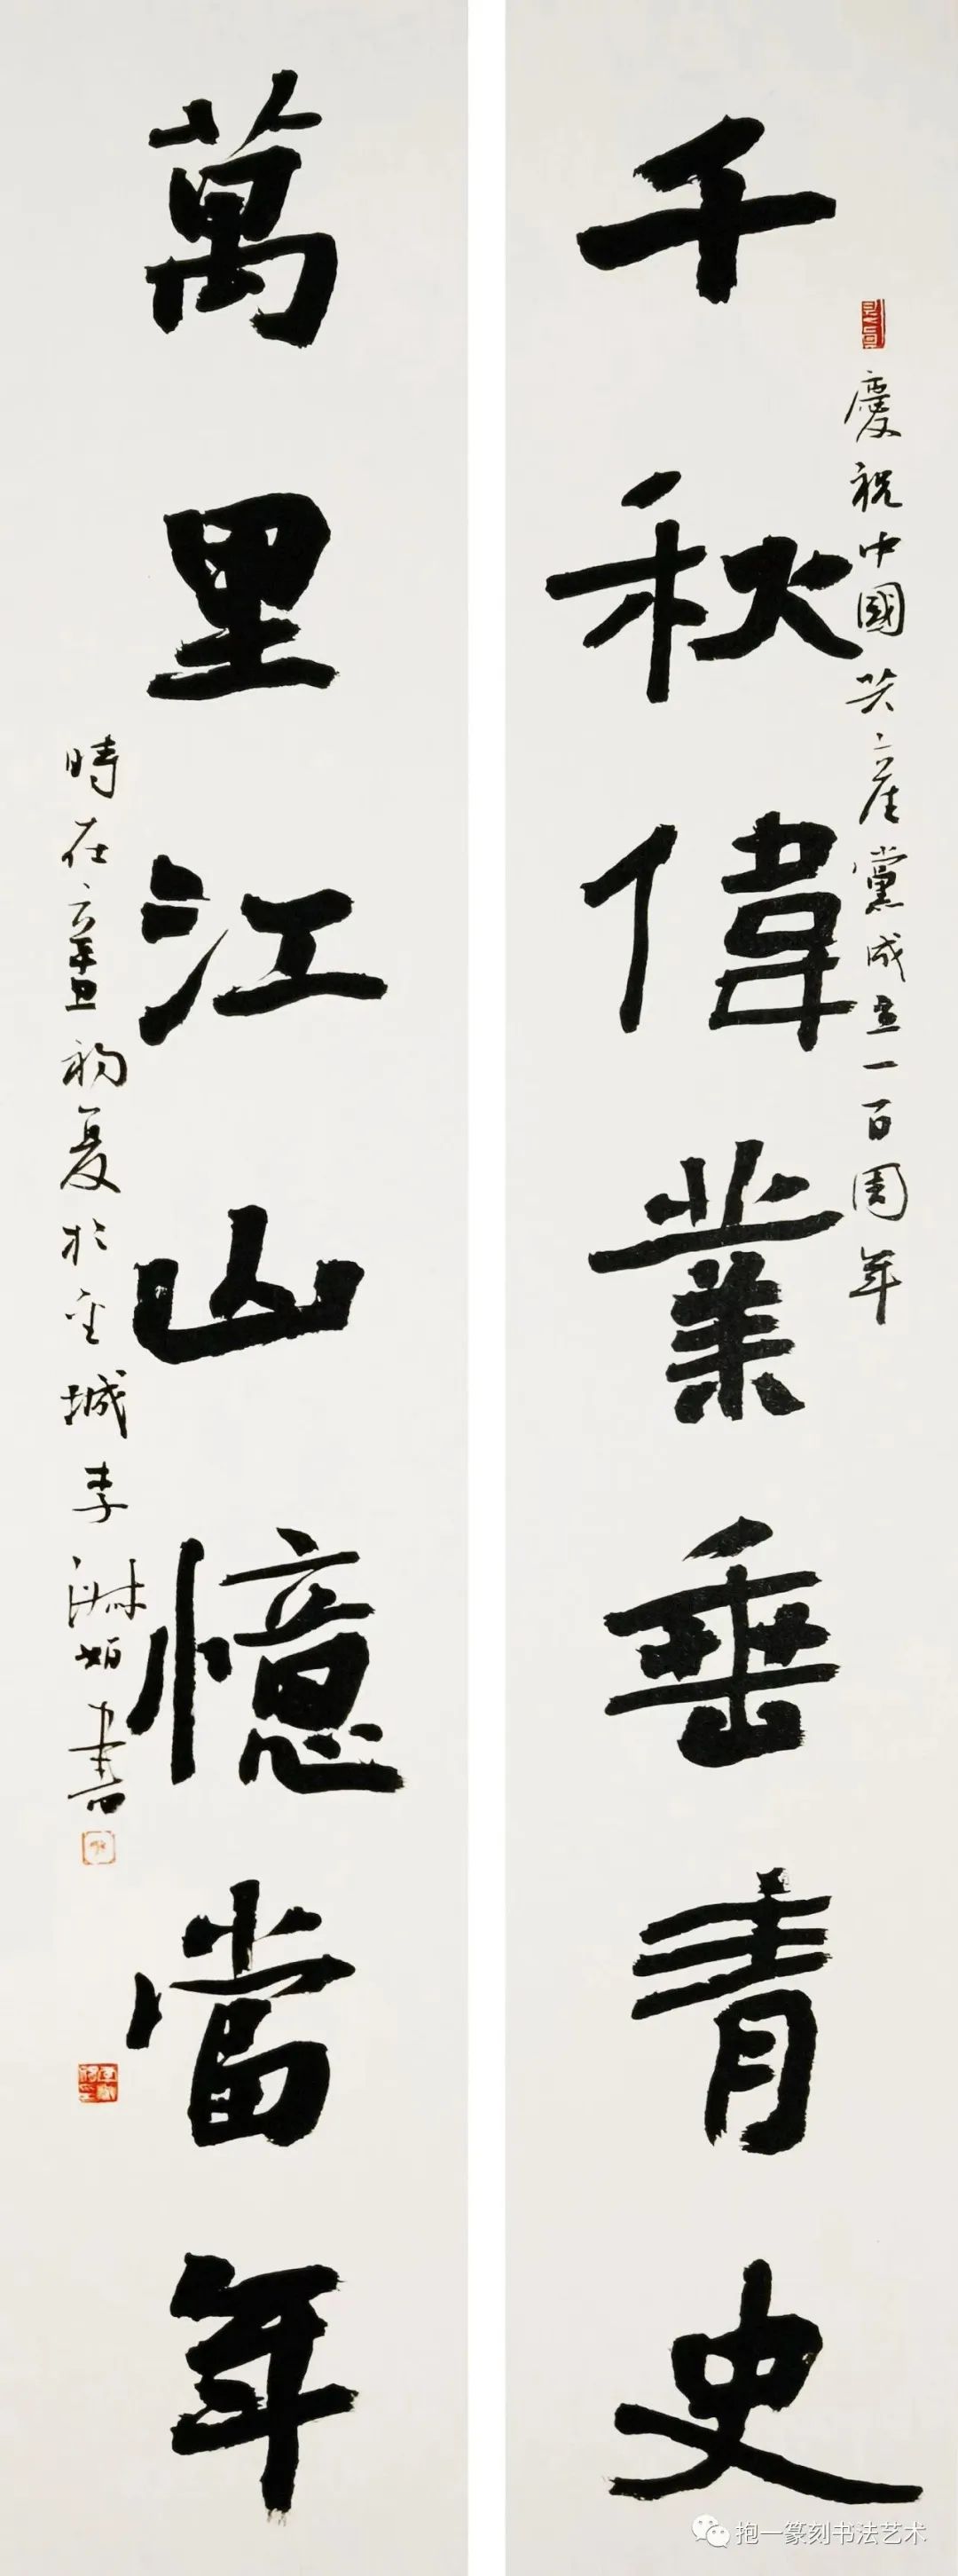 慶祝中國共產黨成立一百周年
千秋偉業垂青史
萬里江山憶當年
時在辛丑初夏於金城李淑姮書
抱一篆刻书法艺术